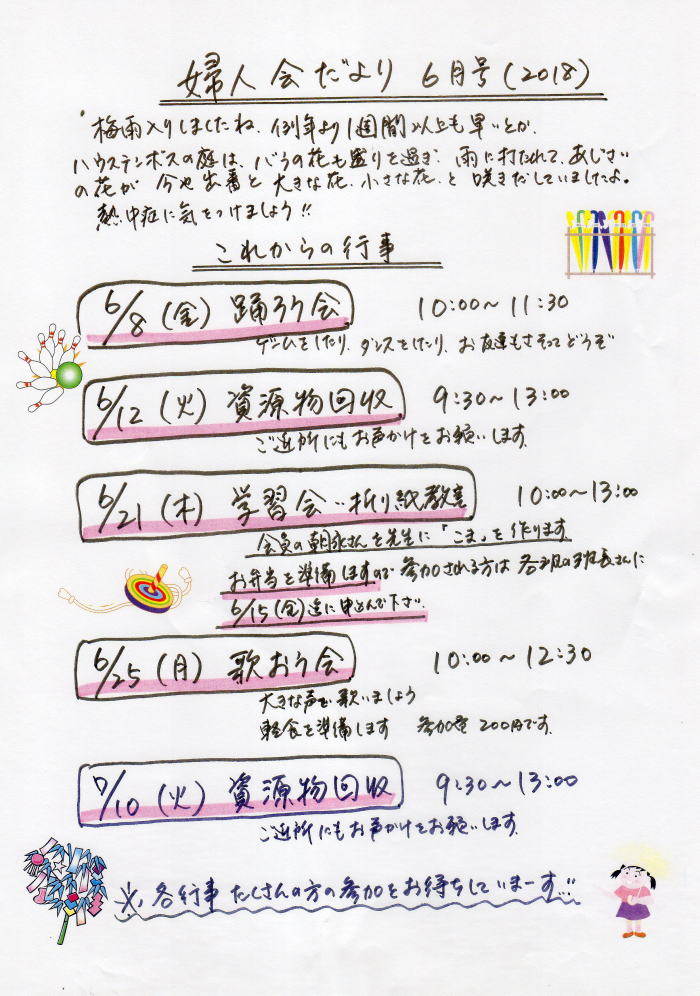 婦人会だより 6月号(2018)
梅雨入りしましたね、例年より1週間以上も早いとか、
ハウステンボスの庭は、バラの花も盛りを過ぎ、雨に打たれて、あじさい
の花が 今や出番と 大きな花、小さな花、と 咲きだしていましたよ。
熱中症に気をつけましょう!!
これからの行事
6/8(金) 踊ろう会 10:00〜11:30
ゲームをしたり、ダンスをしたり、お友達もさそってどうぞ
6/12(火) 資源物回収 9:30〜13:00
ご近所にもお声かけをお願いします。
6/21(木) 学習会‥折り紙教室 10:00〜13:00
会員の朝永さんを先生に「こま」を作ります
お弁当を準備しますので 参加される方は 各班の班長さんに
6/15(金)迄に申込んで下さい。
6/25(月) 歌おう会 10:00〜12:30
大きな声で歌いましょう
軽食を準備します 参加費 200円です。
7/10(火) 資源物回収 9:30〜13:00
ご近所にもお声かけをお願いします。
※、各行事 たくさんの方の参加をお待ちしていまーす‥